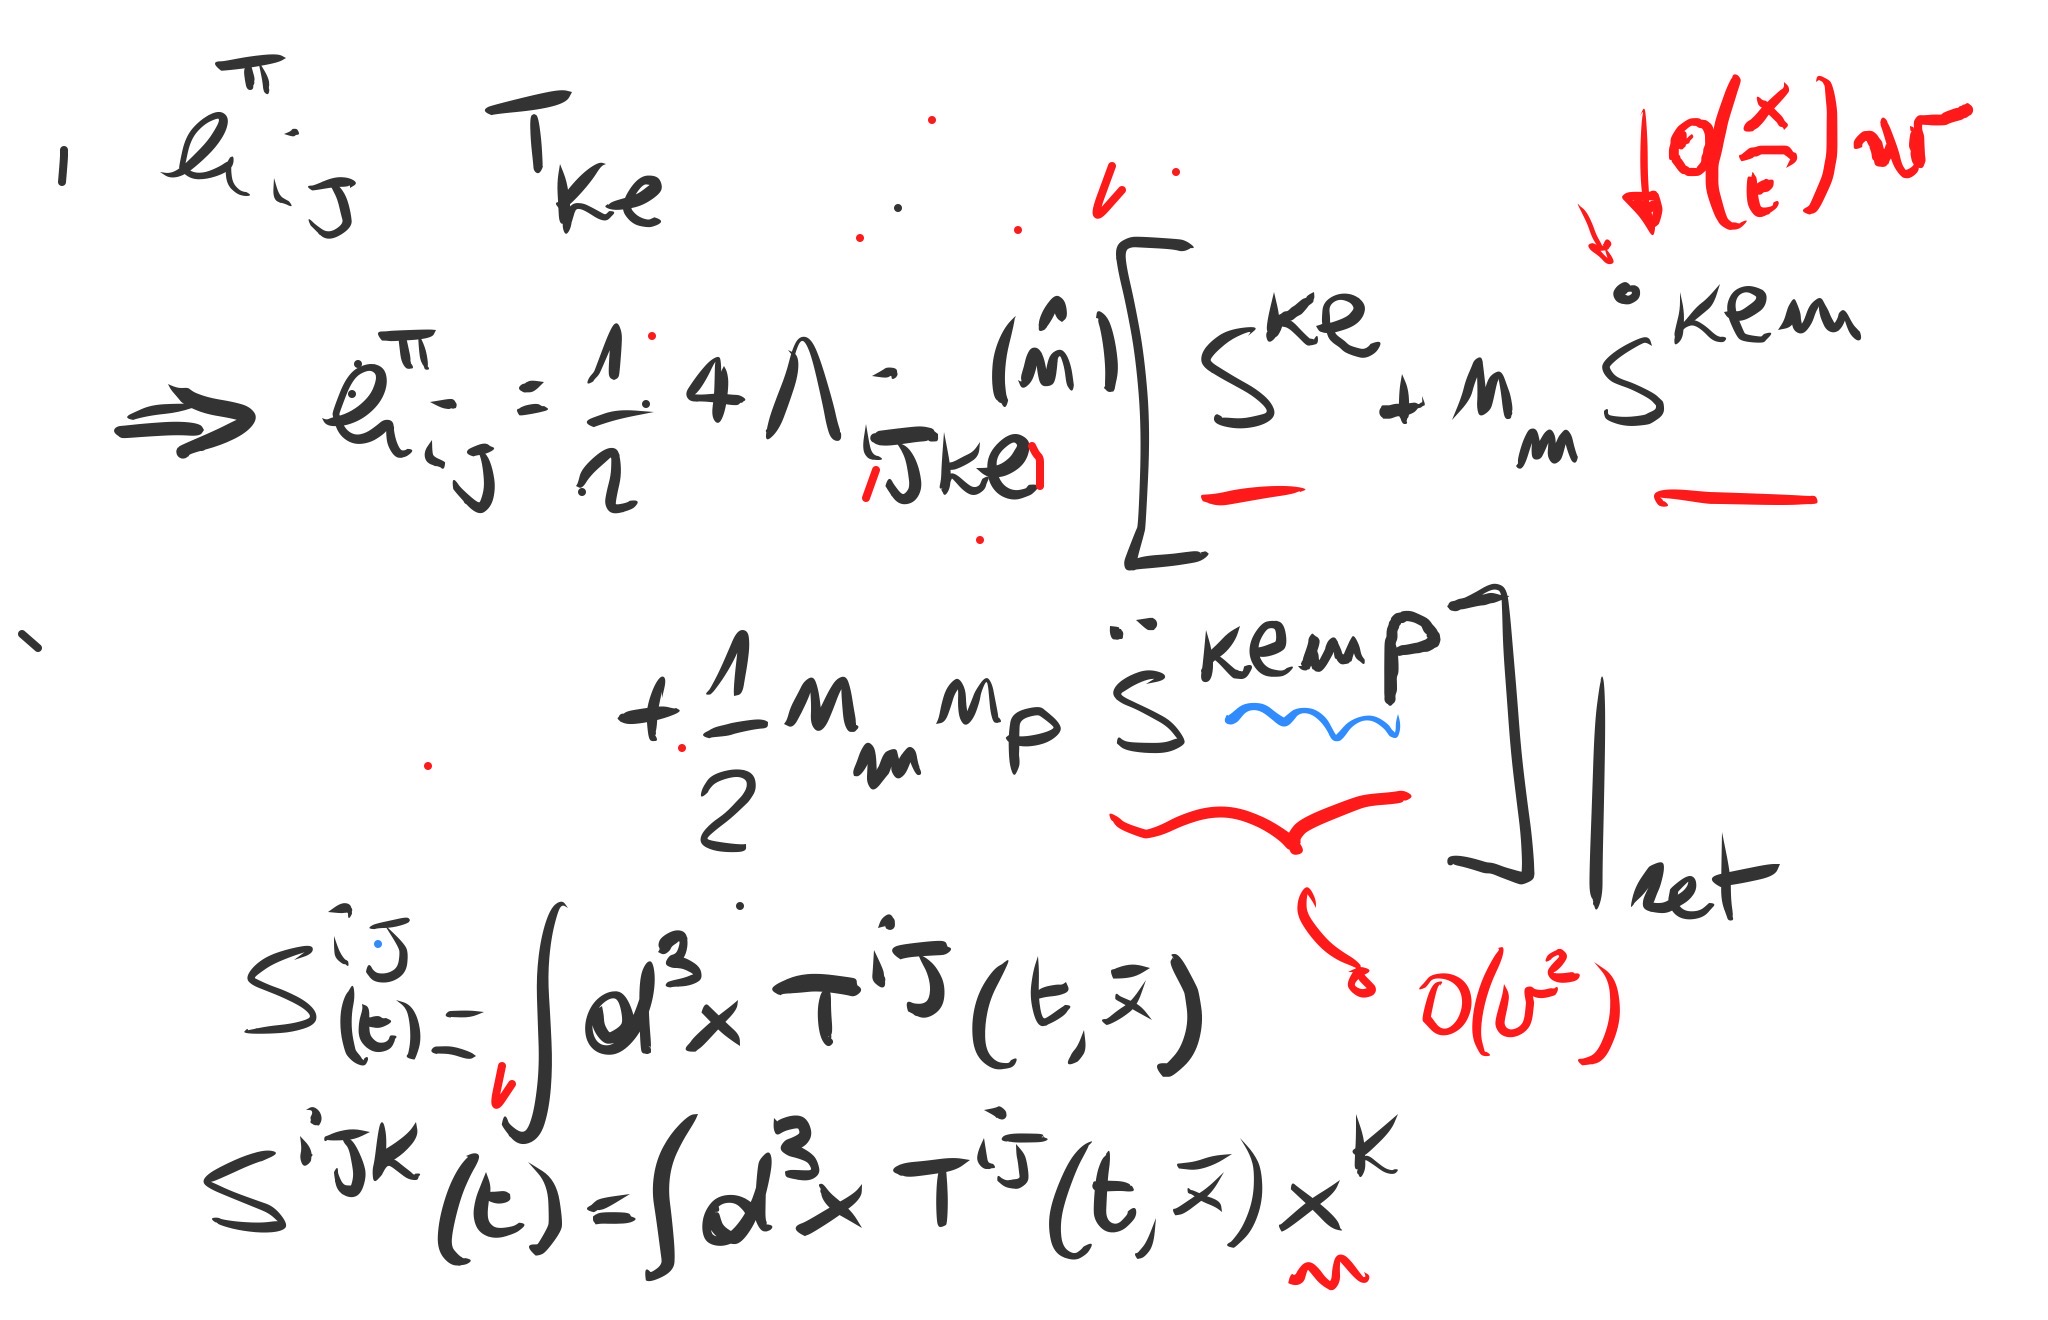 h_{ij}^{TT} T_{kl}
O(x/t) ~ v
⇒ h_{ij}^{TT} = 1/2 4 Λ_{ijkl} (n̂) [ S^{kl} + n_m Ṡ^{klm}
+ 1/2 n_m n_p S̈^{klmp} ] |_{ret}
O(v²)
S^{ij}(t) = ∫ d³x T^{ij}(t, x̄)
S^{ijk}(t) = ∫ d³x T^{ij}(t, x̄) x^k